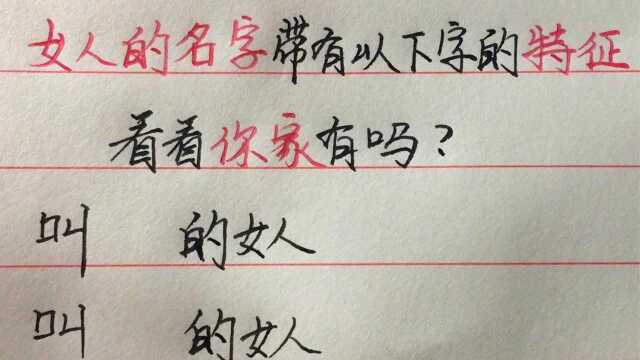 女人的名字带有以下字的特征
看看你家有吗?
叫 的女人
叫 的女人